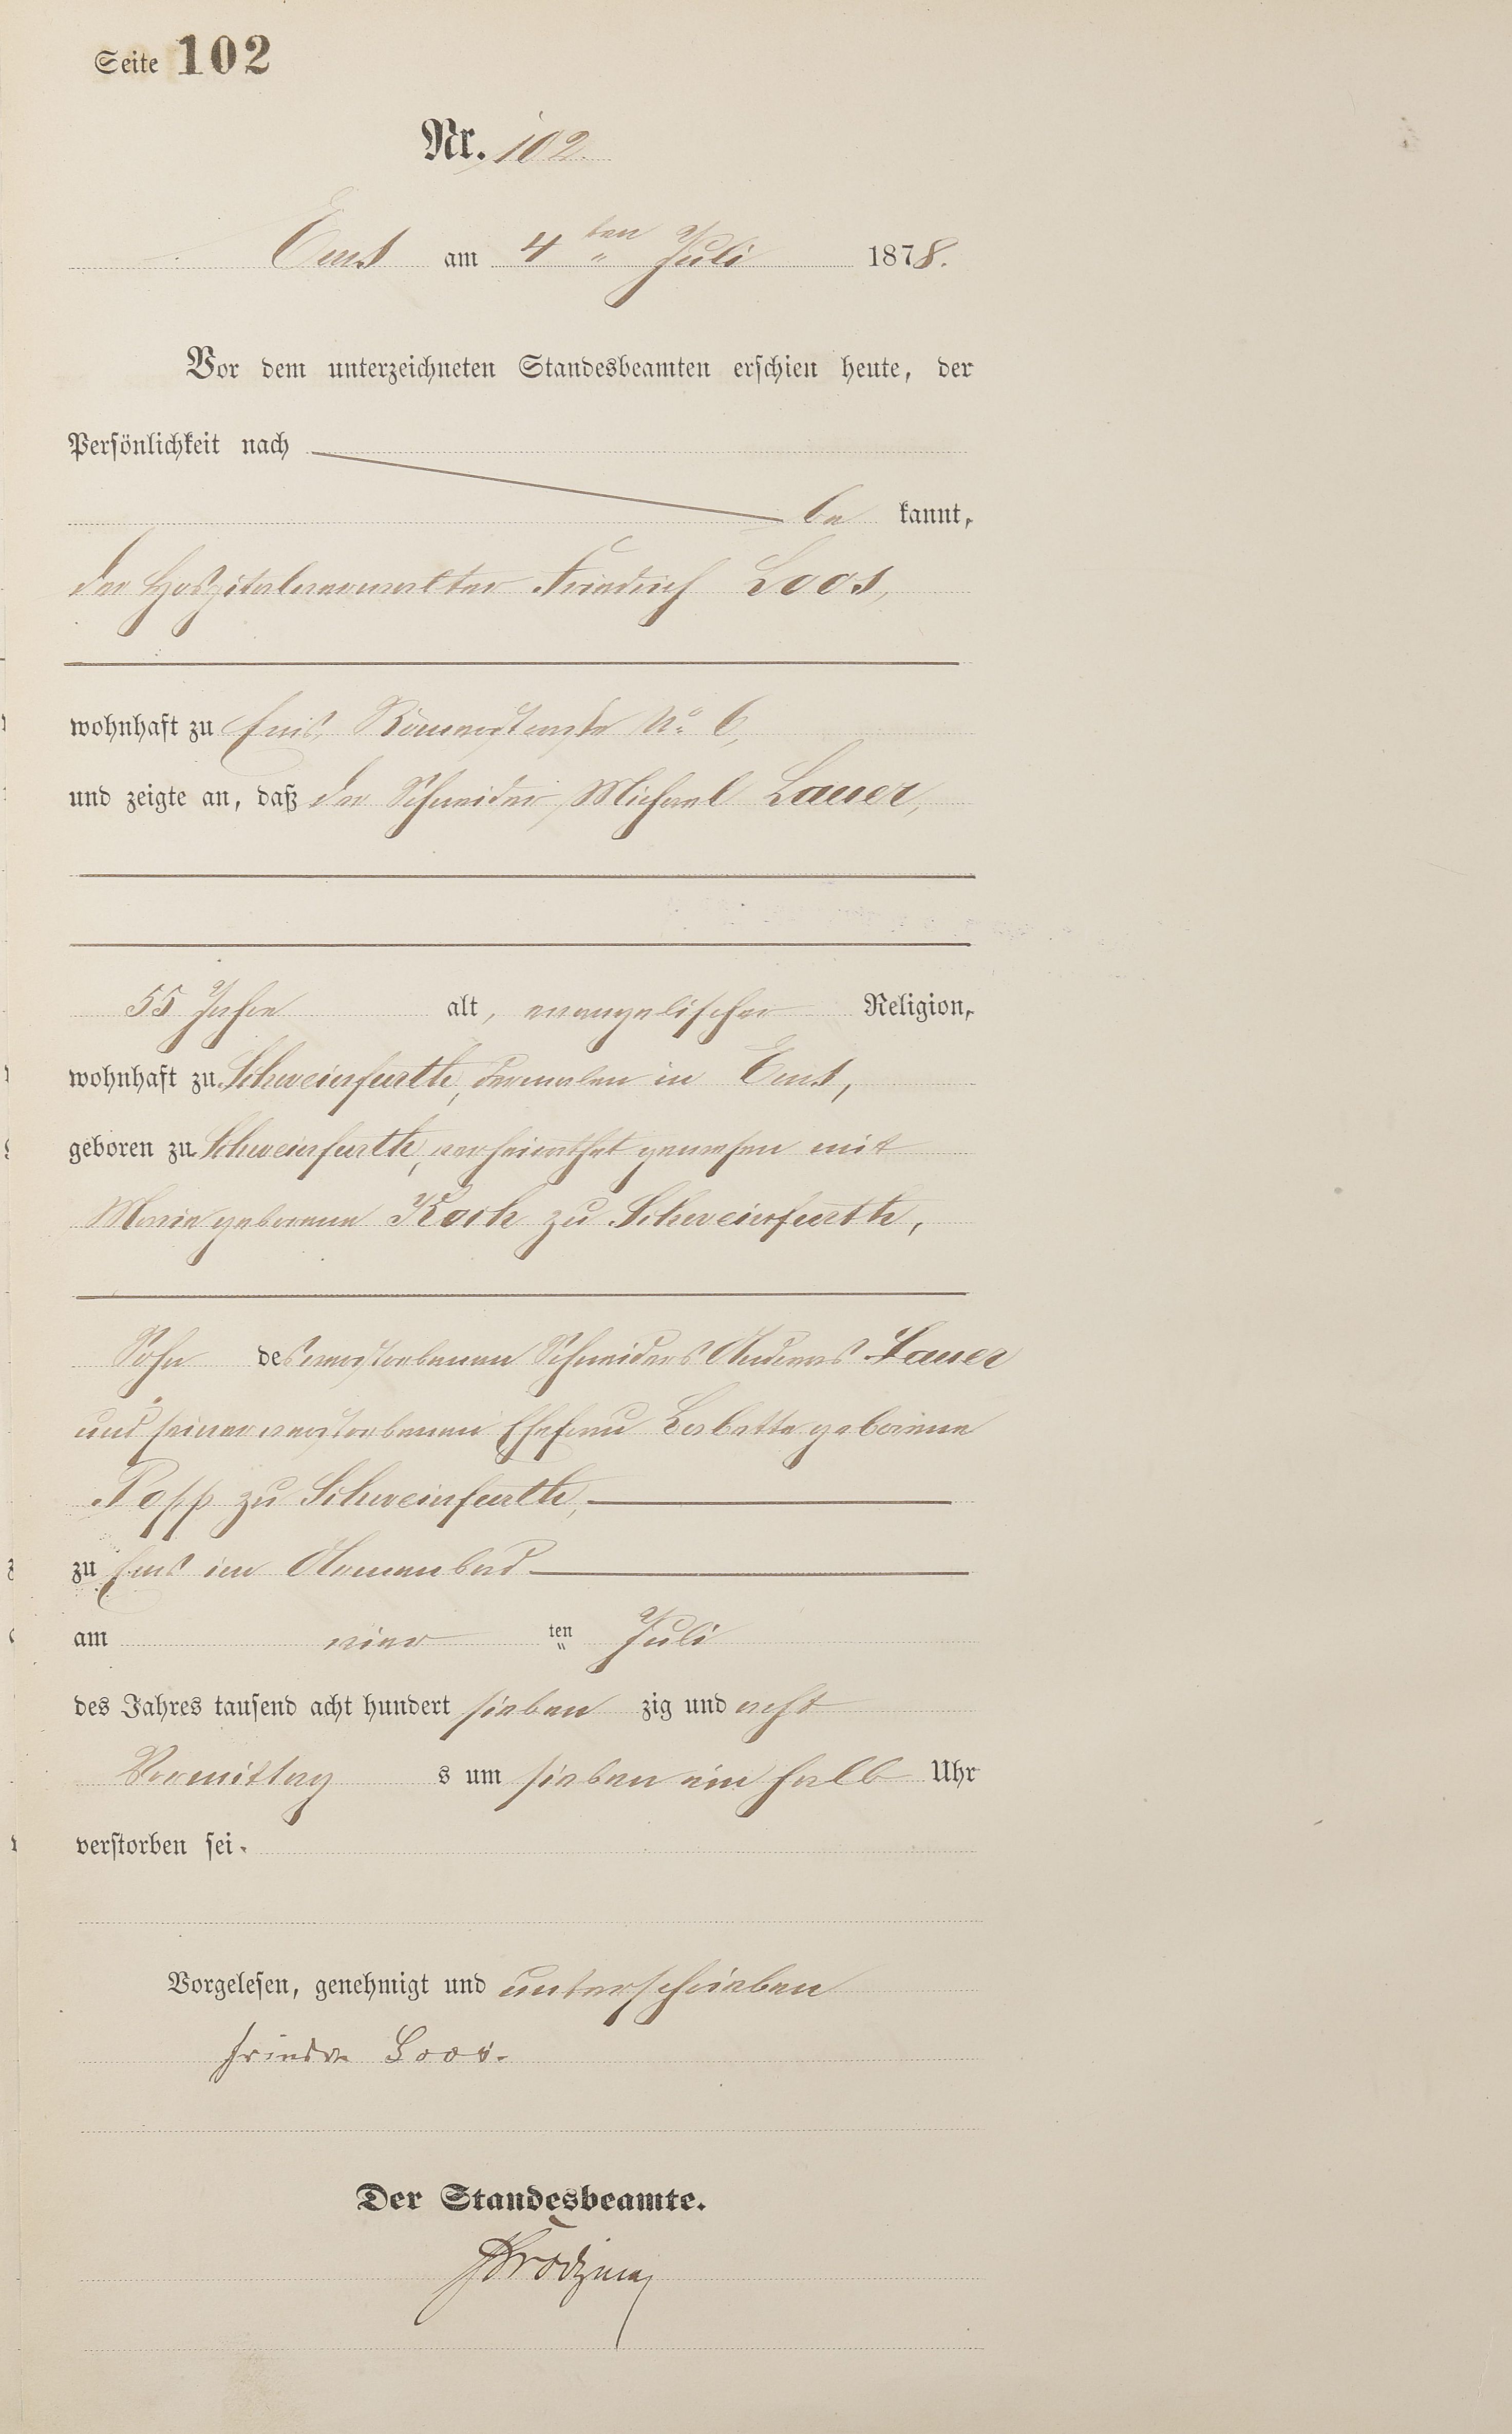 Seite 102
Nr. 102.
Ems am 4ten Juli 1878.
Vor dem unterzeichneten Standesbeamten erschien heute, der
Persönlichkeit nach
be kannt,
der Hospitalverwalter Friedrich Loos,
wohnhaft zu Ems, Römerstraße No. 6,
und zeigte an, daß der Schneider Michael Lauer,
55 Jahre alt, evangelischer Religion,
wohnhaft zu Schweinfurth, dermalen in Ems,
geboren zu Schweinfurth, verheirathet gewesen mit
Marie geborene Koch zu Schweinfurth,
Sohn des verstorbenen Schneiders Andreas Lauer
und seiner verstorbenen Ehefrau Babette geborene
Popp zu Schweinfurth,
zu Ems im Armenbad
am vier ten Juli
des Jahres tausend acht hundert sieben zig und acht
Vormittag s um sieben ein halb Uhr
verstorben sei.
Vorgelesen, genehmigt und unterschrieben
Loos.
Der Standesbeamte.